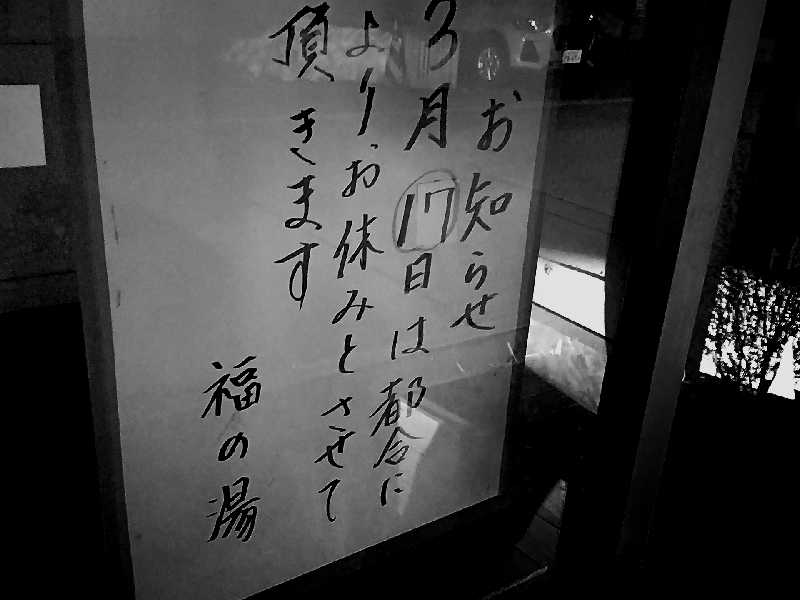 お知らせ
3月17日は都合に
よりお休みとさせて
頂きます
福の湯